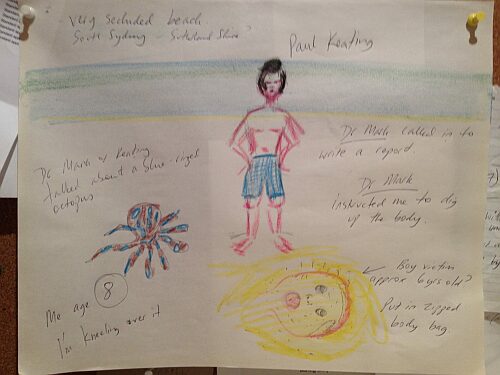 Very secluded beach.
South Sydney - Sutherland Shire?
Paul Keating
Dr Mark called in to
write a report
Dr Mark & Keating
talked about a blue-ringed
octopus
Dr Mark
instructed me to dig
up the body.
Boy victim
approx 6 yrs old?
Put in zipped
body bag
Me age 8
I'm kneeling over it